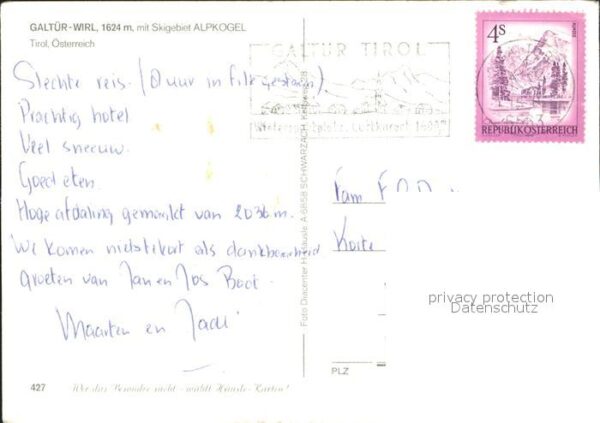 GALTÜR-WIRL, 1624 m, mit Skigebiet ALPKOGEL
Tirol, Österreich
Slechte reis. (0 uur in file gestaan)
Prachtig hotel
Veel sneeuw.
Goed eten.
Hoge afdaling gemaakt van 2036 m.
We komen niets tekort als dankbaarheid
groeten van Jan en Jos Boot.
Maarten en
427
Wer das Besondre sucht - wählt Häusle-Karten!
Foto Diacenter H. Häusle A 6858 SCHWARZACH
GALTÜR TIROL
Wintersportplatz, Luftkurort
4S
REPUBLIK ÖSTERREICH
Fam
Korte
privacy protection
Datenschutz
PLZ